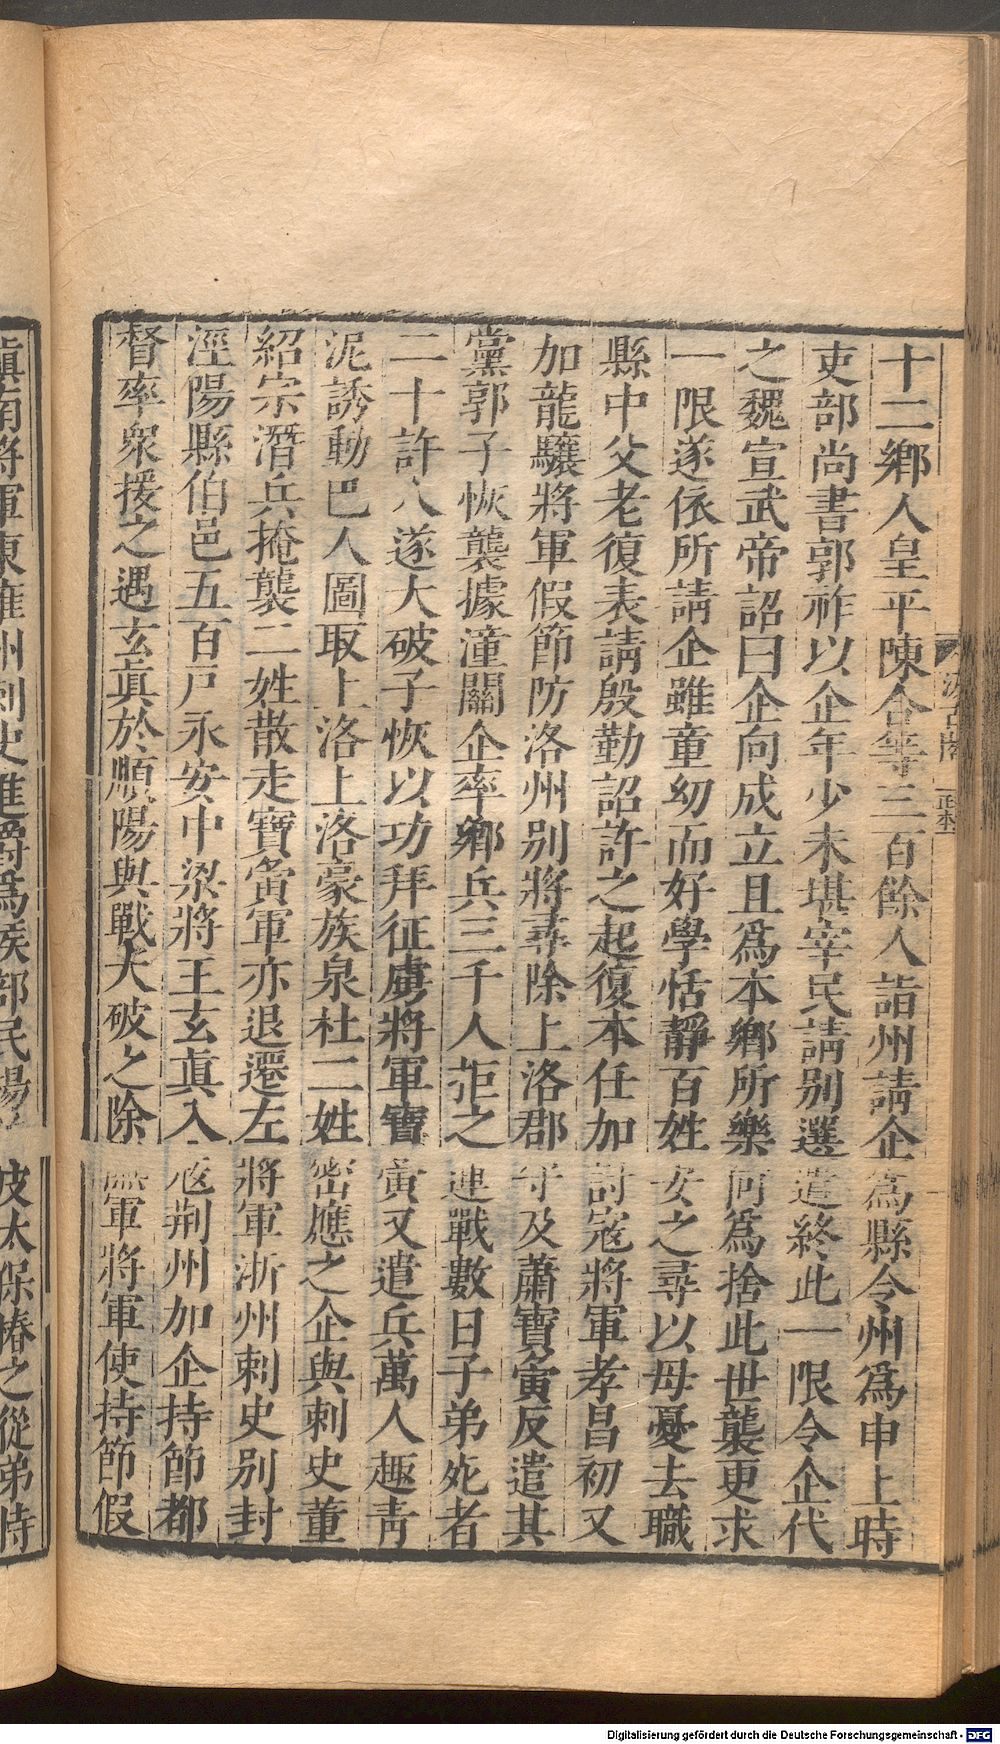 十二鄉人皇平陳合等三百餘人詣州請企爲縣令州爲申上時
吏部尚書郭祚以企年少未堪宰民請別選遣終此一限令企代
之魏宣武帝詔曰企向成立且爲本鄉所樂何爲捨此世襲更求
一限遂依所請企雖童幼而好學恬靜百姓安之尋以母憂去職
縣中父老復表請殷勤詔許之起復本任加討寇將軍孝昌初又
加龍驤將軍假節防洛州別將尋除上洛郡守及蕭寶夤反遣其
黨郭子恢襲據潼關企率鄉兵三千人拒之連戰數日子弟死者
二十許人遂大破子恢以功拜征虜將軍寶夤又遣兵萬人趣青
泥誘動巴人圖取上洛上洛豪族泉杜二姓密應之企與刺史董
紹宗潛兵掩襲二姓散走寶夤軍亦退遷左將軍淅州刺史別封
涇陽縣伯邑五百戶永安中梁將王玄眞入寇荆州加企持節都
督率衆援之遇玄眞於順陽與戰大破之除撫軍將軍使持節假
鎭南將軍東雍州刺史進爵爲侯部民楊
皮太保椿之從弟恃
汲古閣
正本
Digitalisierung gefördert durch die Deutsche Forschungsgemeinschaft - DFG